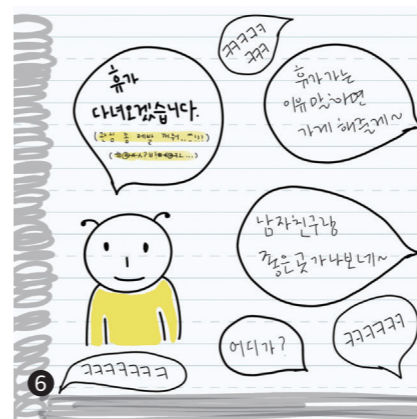 휴가
다녀오겠습니다.
ㅋㅋㅋㅋ
ㅋㅋㅋ
휴가 가는
이유 말하면
가게 해줄게~
남자친구랑
좋은 곳 가나보네~
어디가?
ㅋㅋㅋㅋㅋㅋ
ㅋㅋㅋㅋㅋㅋㅋ
6